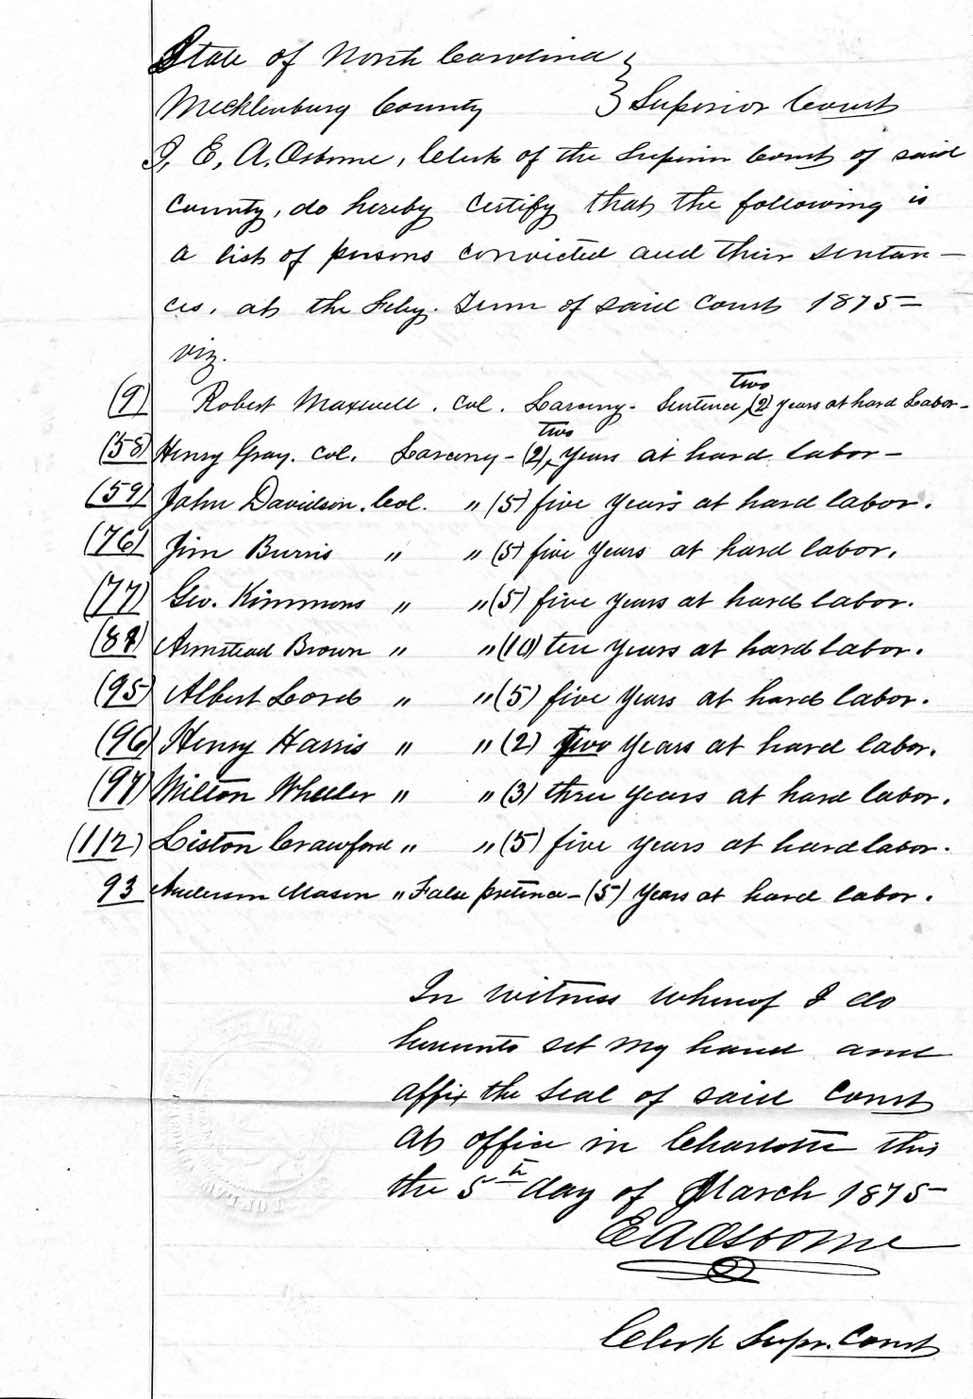 State of North Carolina }
Mecklenburg County } Superior Court
I, E. A. Osborne, Clerk of the Superior Court of said
County, do hereby certify that the following is
a list of persons convicted and their senten-
ces, at the Feby. Term of said Court 1875-
viz.
(9) Robert Maxwell. Col. Larceny- Sentence, two (2) years at hard Labor-
(58) Henry Gray. Col. Larceny- two (2) years at hard labor-
(59) John Davidson. Col. " (5) five years at hard labor.
(76) Jim Burris " " (5) five years at hard labor.
(77) Geo. Kimmons " " (5) five years at hard labor.
Armstead Brown " " (10) ten years at hard labor.
(95) Albert Lord " " (5) five years at hard labor.
(96) Henry Harris " " (2) two years at hard labor.
(97) Milton Wheeler " " (3) three years at hard labor.
(112) Liston Crawford " " (5) five years at hard labor.
93 Anderson Mason " False pretence- (5) years at hard labor.
In witness whereof I do
hereunto set my hand and
affix the seal of said Court
at office in Charlotte this
the 5th day of March 1875-
E A Osborne
Clerk Supr. Court